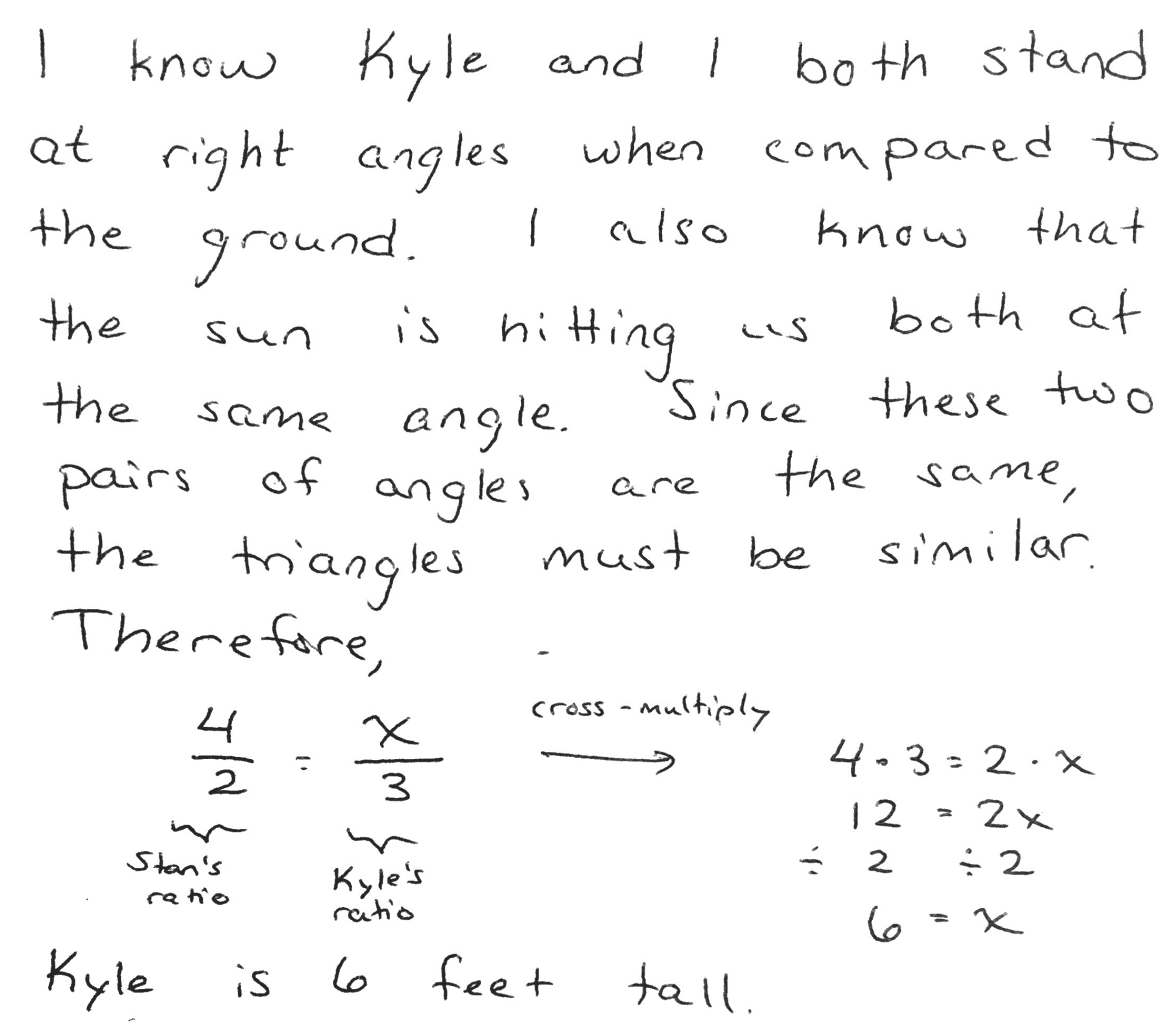 I know Kyle and I both stand
at right angles when compared to
the ground. I also know that
the sun is hitting us both at
the same angle. Since these two
pairs of angles are the same,
the triangles must be similar.
Therefore,
4/2 = x/3
cross-multiply
Stan's ratio
Kyle's ratio
4·3=2·x
12 = 2x
÷ 2 ÷ 2
6 = x
Kyle is 6 feet tall.